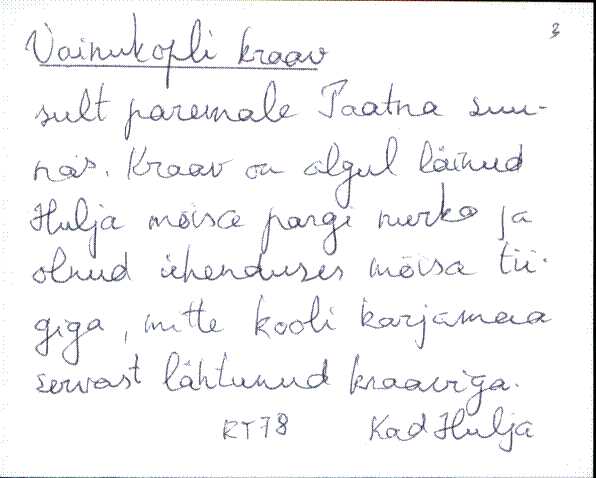 3
Vainukopli kraav
sult paremale Paatna suu-
nas. Kraav on algul läinud
Hulja mõisa pargi nurka ja
olnud ühenduses mõisa tii-
giga, mitte kooli karjamaa
servast lähtunud kraaviga.
RT78 Kad Hulja